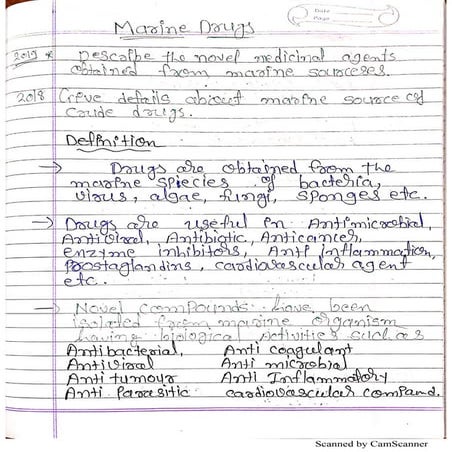 Date
Page
Marine Drugs
2019 * Describe the novel medicinal agents
obtained from marine sourceses.
2018 Give details about marine source of
crude drugs.
Definition
→ Drugs are obtained from the
marine species of bacteria,
virus, algae, fungi, sponges etc.
→ Drugs are useful in Antimicrobial,
Antiviral, Antibiotic, Anticancer,
enzyme inhibitors, Anti Inflammation,
Prostaglandins, cardiovascular agent
etc.
→ Novel compounds have been
isolated from marine organism
having biological Activities such as
Antibacterial, Anti coagulant
Antiviral Anti microbial
Anti tumour Anti Inflammatory
Anti Parasitic cardiovascular compand.
Scanned by CamScanner